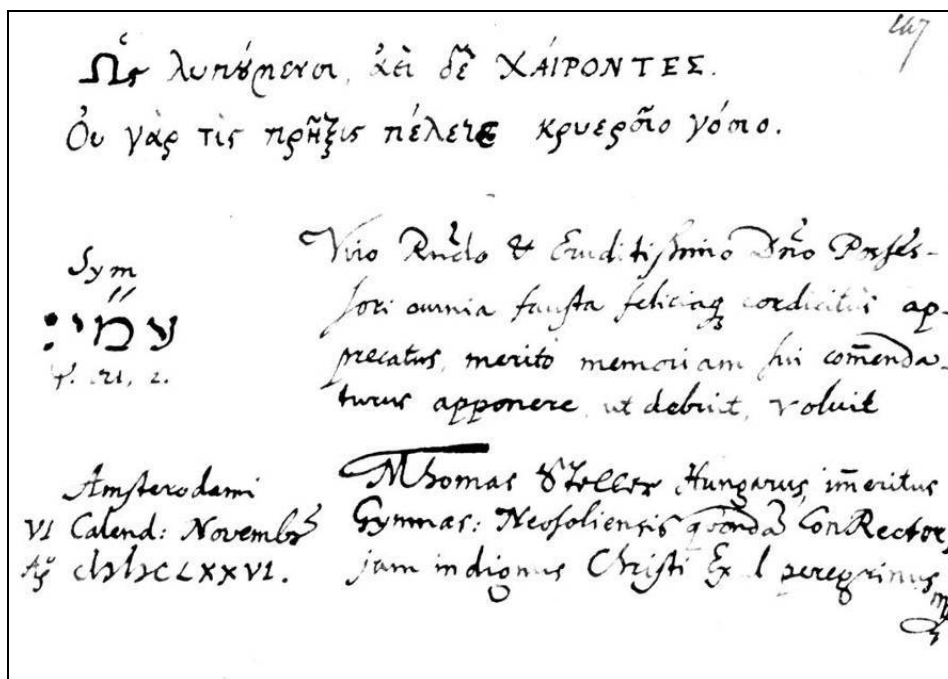 247
Ὡς λυπούμενοι, ἀεὶ δὲ ΧΑΊΡΟΝΤΕΣ.
Οὐ γὰρ τὶς πρῆξις πέλεται κρυεροῖο γόοιο.
Sym
עמי״:
ψ. 121, 2.
Viro Rndo & Eruditissimo Dno Profes-
sori omnia fausta feliciaq cordicitùs ap-
precatus, meritò memoriam sui comenda-
turus apponere, ut debuit, voluit
Amsterodami
VI Calend: Novemb
Aō CIƆIƆCLXXVI.
Thomas Steller Hungarus, imeritus
Gymnas: Neosoliensis quonda ConRector,
jam indignus Christi Exul peregrinus
mp